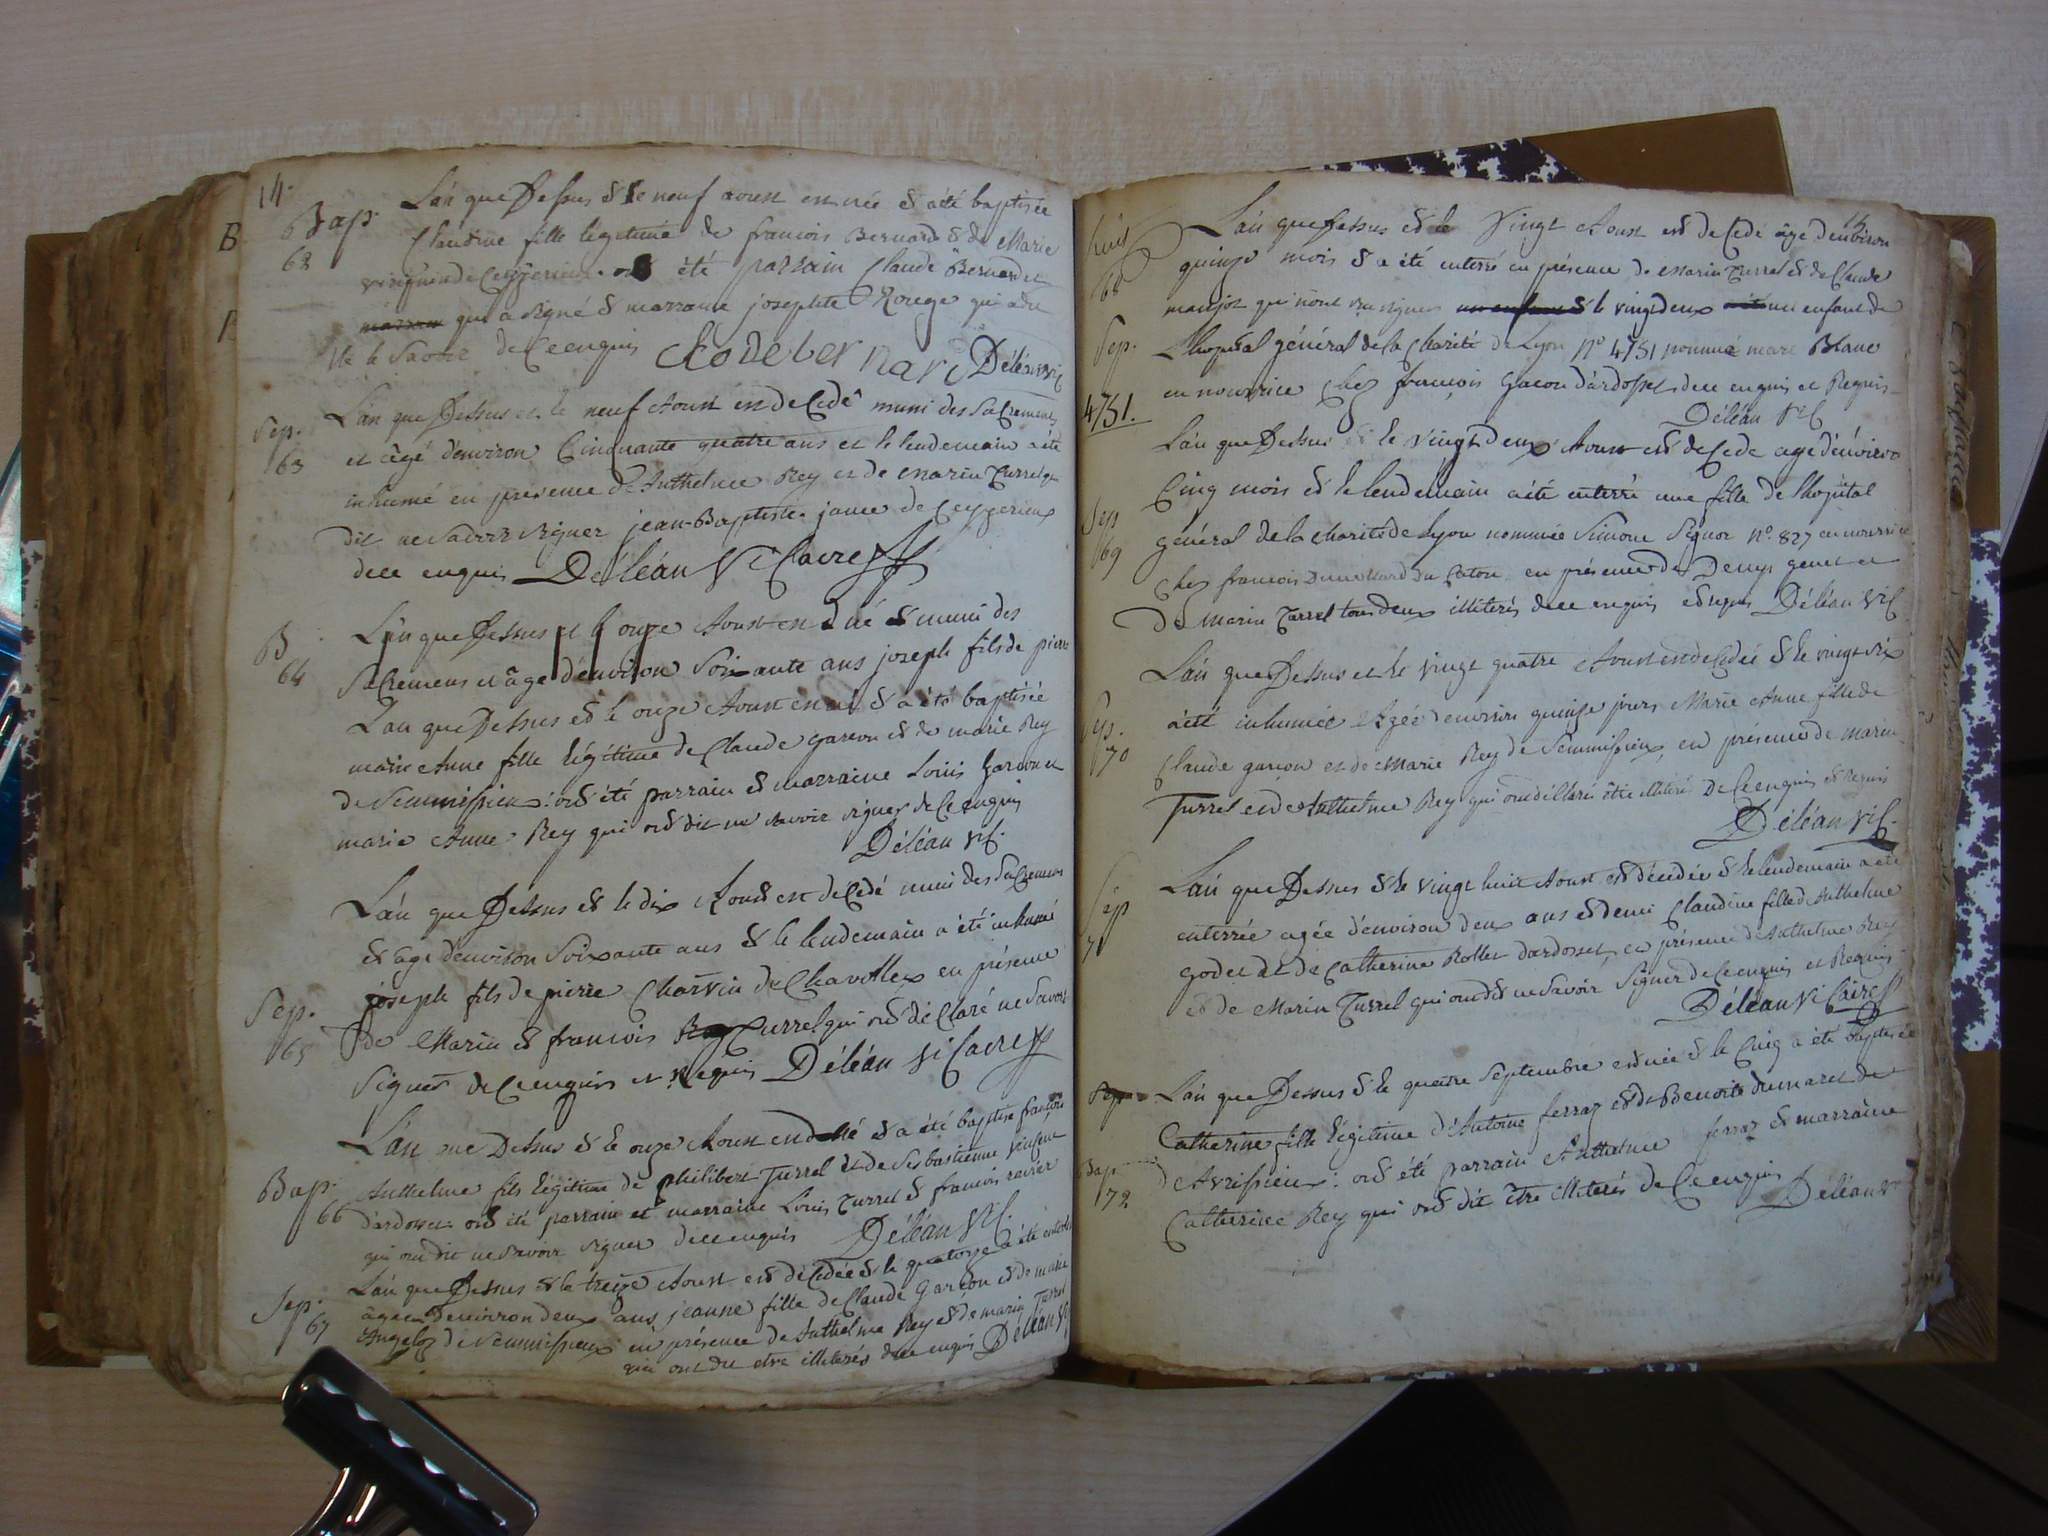 14.
Bap.
62
L'an que Dessus & le neuf aoust est née & a été baptisée
Claudine fille légitime de francois Bernard & de Marie
de Ceyzerieux. ont été parrain Claude Bernard
qui a signé & marraine josephte Rouge qui a dit
ne le Savoir de Ce enquis Clodebernard Déléan Vic
Sep.
63
L'an que Dessus et le neuf Aoust est deCedé muni des SaCremens
et âgé d'environ Cinquante quatre ans et le lendemain a été
inhumé en presence d'Anthelme Rey et de Marin Turrel qui
dit ne Savoir signer jean-Baptiste jance de Ceyzerieux
de ce enquis Déléan ViCaire
B
64
L'an que Dessus et le onze Aoust est né & muni des
SaCremens et âgé d'environ Soixante ans joseph fils de pierre
L'an que Dessus et le onze Aoust est né & a été baptisée
marie Anne fille légitime de Claude garcon et de marie Rey
de Semmissieux: ont été parrain & marraine Louis Garcon et
marie Anne Rey qui ont dit ne savoir signer de Ce enquis
Déléan Vic.
Sep.
65
L'an que Dessus et le dix Aoust est deCedé muni des SaCremens
et âgé d'environ Soixante ans & le lendemain a été inhumé
joseph fils de pierre Charvin de Chavollex en présence
de Marin & francois Turrel qui ont déClaré ne Savoir
Signer de Ce enquis et Requis Déléan ViCaire
Bap.
66
L'an que Dessus & le onze Aoust est né & a été baptisé françois
Anthelme fils légitime de philibert Turrel et de Sebastienne
d'ardosset. ont été parrain et marraine Louis Turrel & francois ravier
qui ont dit ne Savoir signer de ce enquis Déléan Vic.
Sep.
67
L'an que Dessus & le treize Aoust est déCedée & le quatorze a été enterrée
âgée d'environ deux ans jeanne fille de Claude Garçon et de marie
Angelos de Semmissieux en présence de Anthelme Rey & de marin Turrel
qui ont dit etre illiterés de ce enquis Déléan Vic
15
68
Sep.
4751.
L'an que Dessus et le Vingt Aoust est deCedé âgé d'environ
quinze mois & a été enterré en présence de Marin Turrel & de Claude
manjot qui n'ont su signer & le vingt deux un enfant de
L'hopital général de la Charité de Lyon N° 4751 nommé marc Blanc
en nourrice Chez françois Gacon d'ardosset de ce enquis et Requis
Déléan Vic
Sep
69
L'an que Dessus et le vingt deux Aoust est deCedé agé d'environ
Cinq mois et le lendemain a été enterré une fille de l'hopital
général de la Charité de Lyon nommée Simone Signor N° 827 en nourrice
Chez francois du Caton en présence de Denys genet et
De Marin Turrel tous deux illiterés de ce enquis et requis Déléan Vic
Sep.
70
L'an que Dessus et le Vingt quatre Aoust est deCedée & le vingt six
a été inhumée Agée d'environ quinze jours Marie Anne fille de
Claude garçon et de Marie Rey de Semmissieux, en présence de marin
Turrel et de Anthelme Rey qui ont déClaré être illiteré De Ce enquis et Requis
Déléan Vic.
Sep
71
L'an que Dessus & le vingt huit Aoust est décedée & le lendemain a été
enterrée agée d'environ deux ans et demi Claudine fille d'Anthelme
Godet et de Catherine Rollet d'ardosset, en présence d'Anthelme Rey
et de Marin Turrel qui ont dit ne Savoir Signer de Ce enquis et Requis.
Déléan ViCaire
Bap
72
L'an que Dessus & le quatre Septembre est née & le Cinq a été baptisée
Catherine fille légitime d'Antoine ferraz et de Benoite dumarest de
d'Avrissieux: ont été parrain Anthelme ferraz & marraine
Catherine Rey qui ont dit être illiterés de Ce enquis Déléan Vic